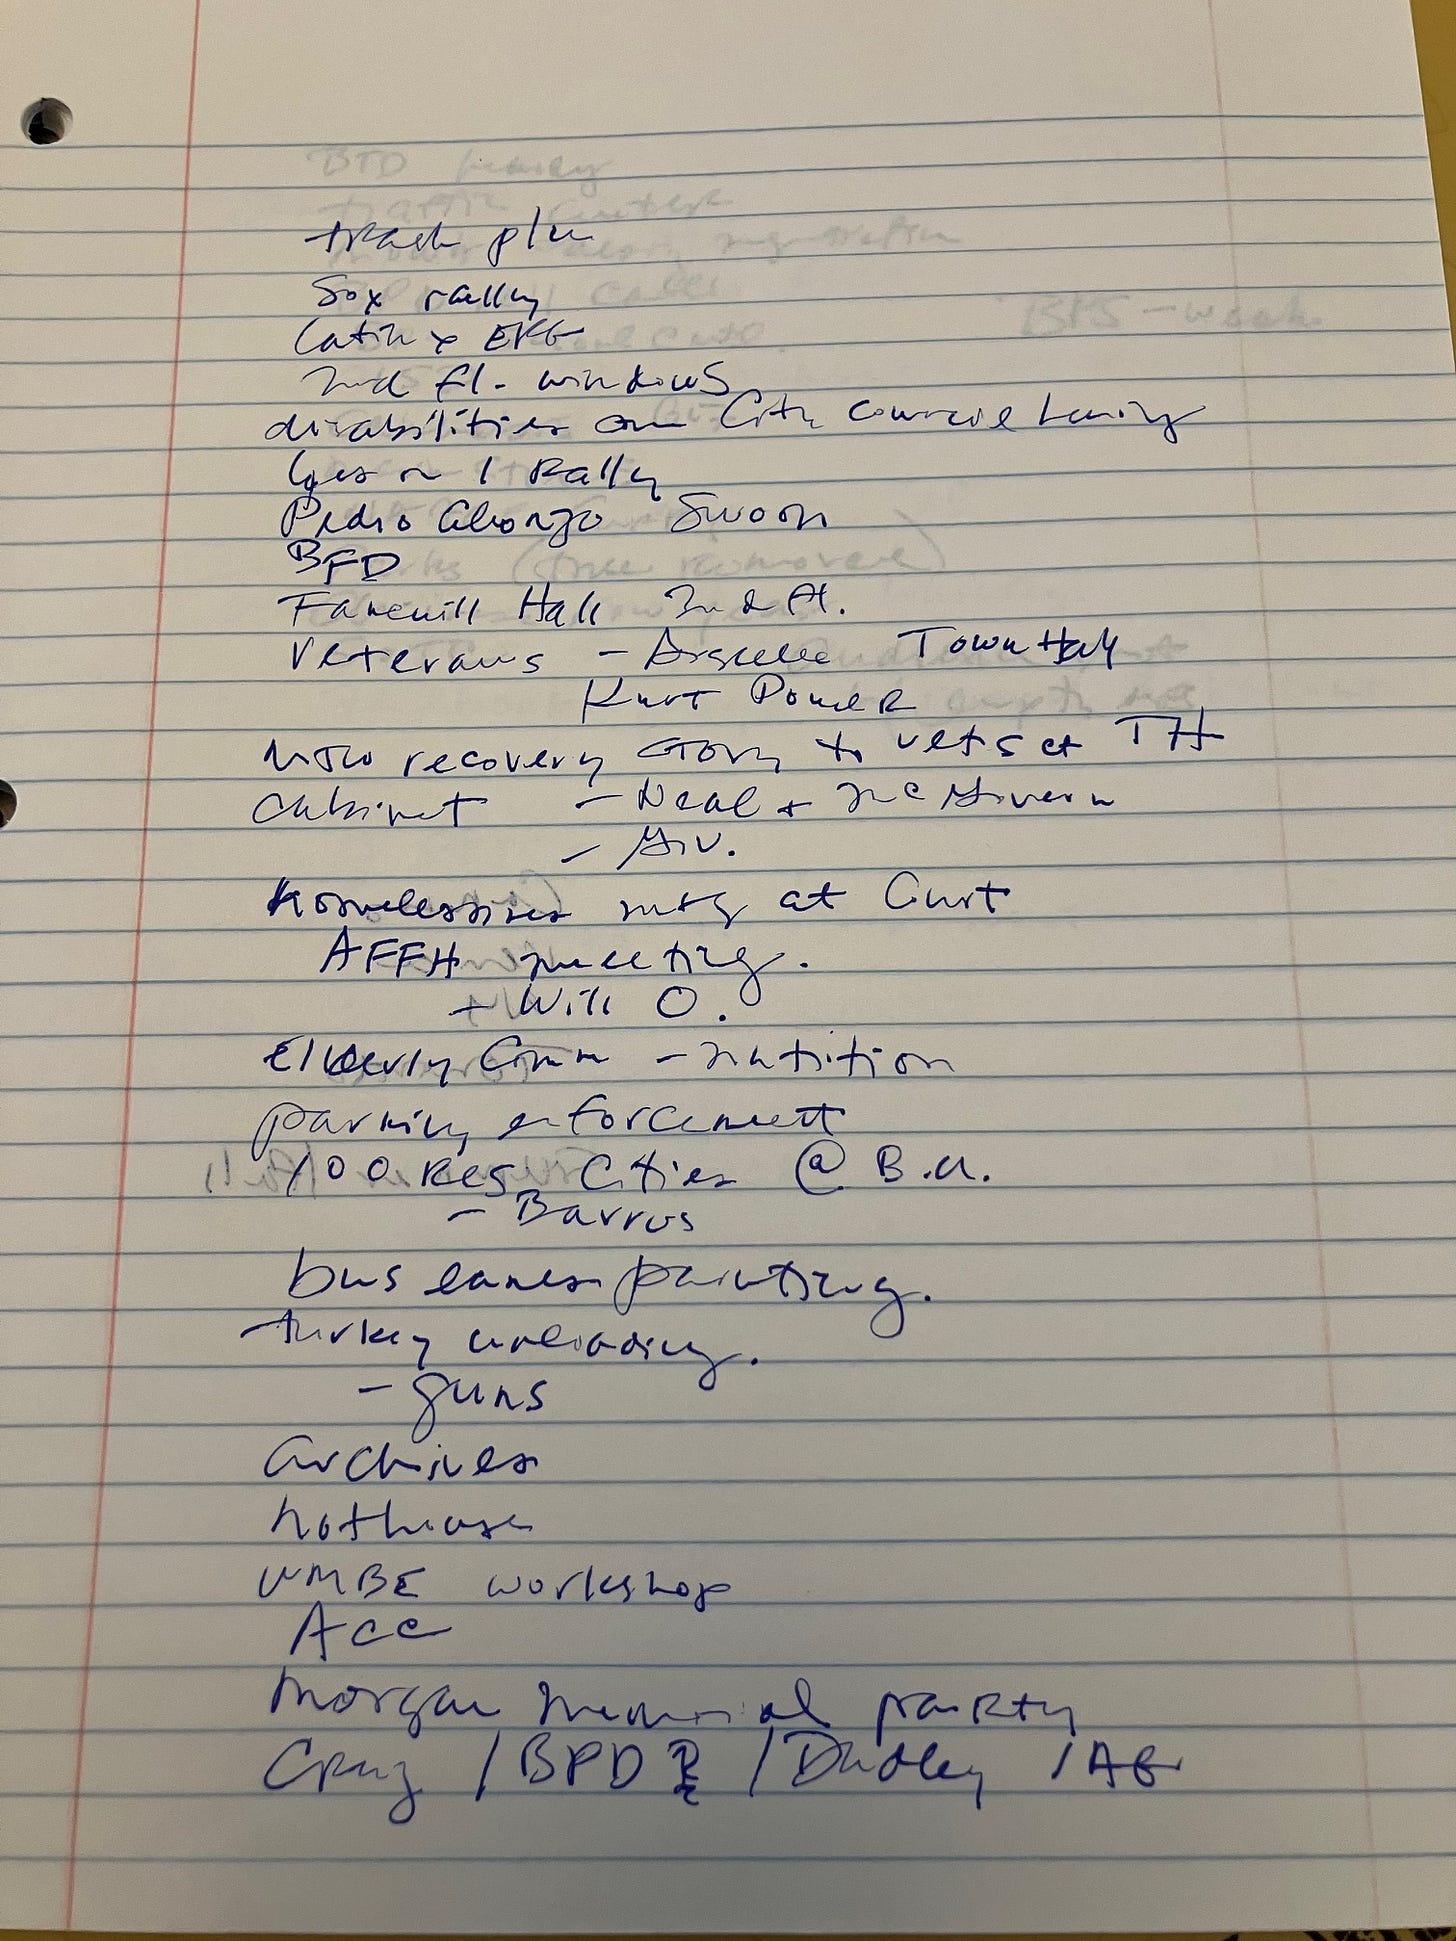 trash plan
Sox rally
Latinx ERG
2nd fl. windows
disabilities on City Council hearing
Yes on 1 Rally
Pedro Alonzo Swoon
BFD
Faneuill Hall 2nd fl.
Veterans - Town Hall
Kurt Power
recovery story to vets at TH
Cabinet - Neal + McGivern
- Gov.
Homelessness mtg at Curt
AFFH meeting.
+ Will O.
Elderly Comm - nutition
parking enforcement
100 Res Cities @ B.U.
- Barros
bus lanes painting.
turkey unloading.
- guns
archives
hothouse
WMBE workshop
ACC
Morgan Memorial party
/ BPD / Dudley / AG